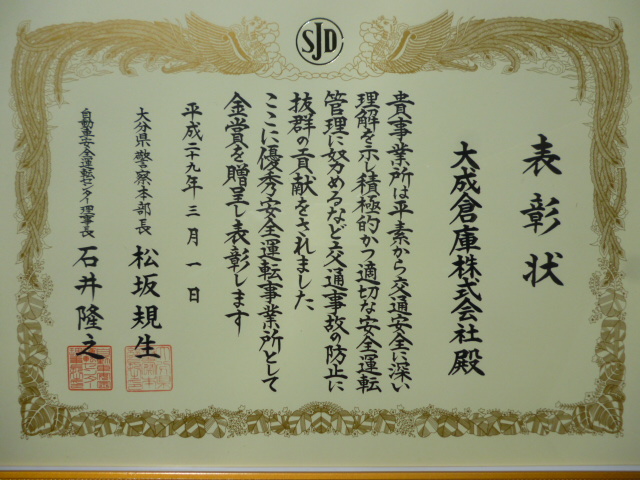 SJD
表彰状
大成倉庫株式会社殿
貴事業所は平素から交通安全に深い
理解を示し積極的かつ適切な安全運転
管理に努めるなど交通事故の防止に
抜群の貢献をされました
ここに優秀安全運転事業所として
金賞を贈呈し表彰します
平成二十九年三月一日
大分県警察本部長 松坂規生
自動車安全運転センター理事長 石井隆之